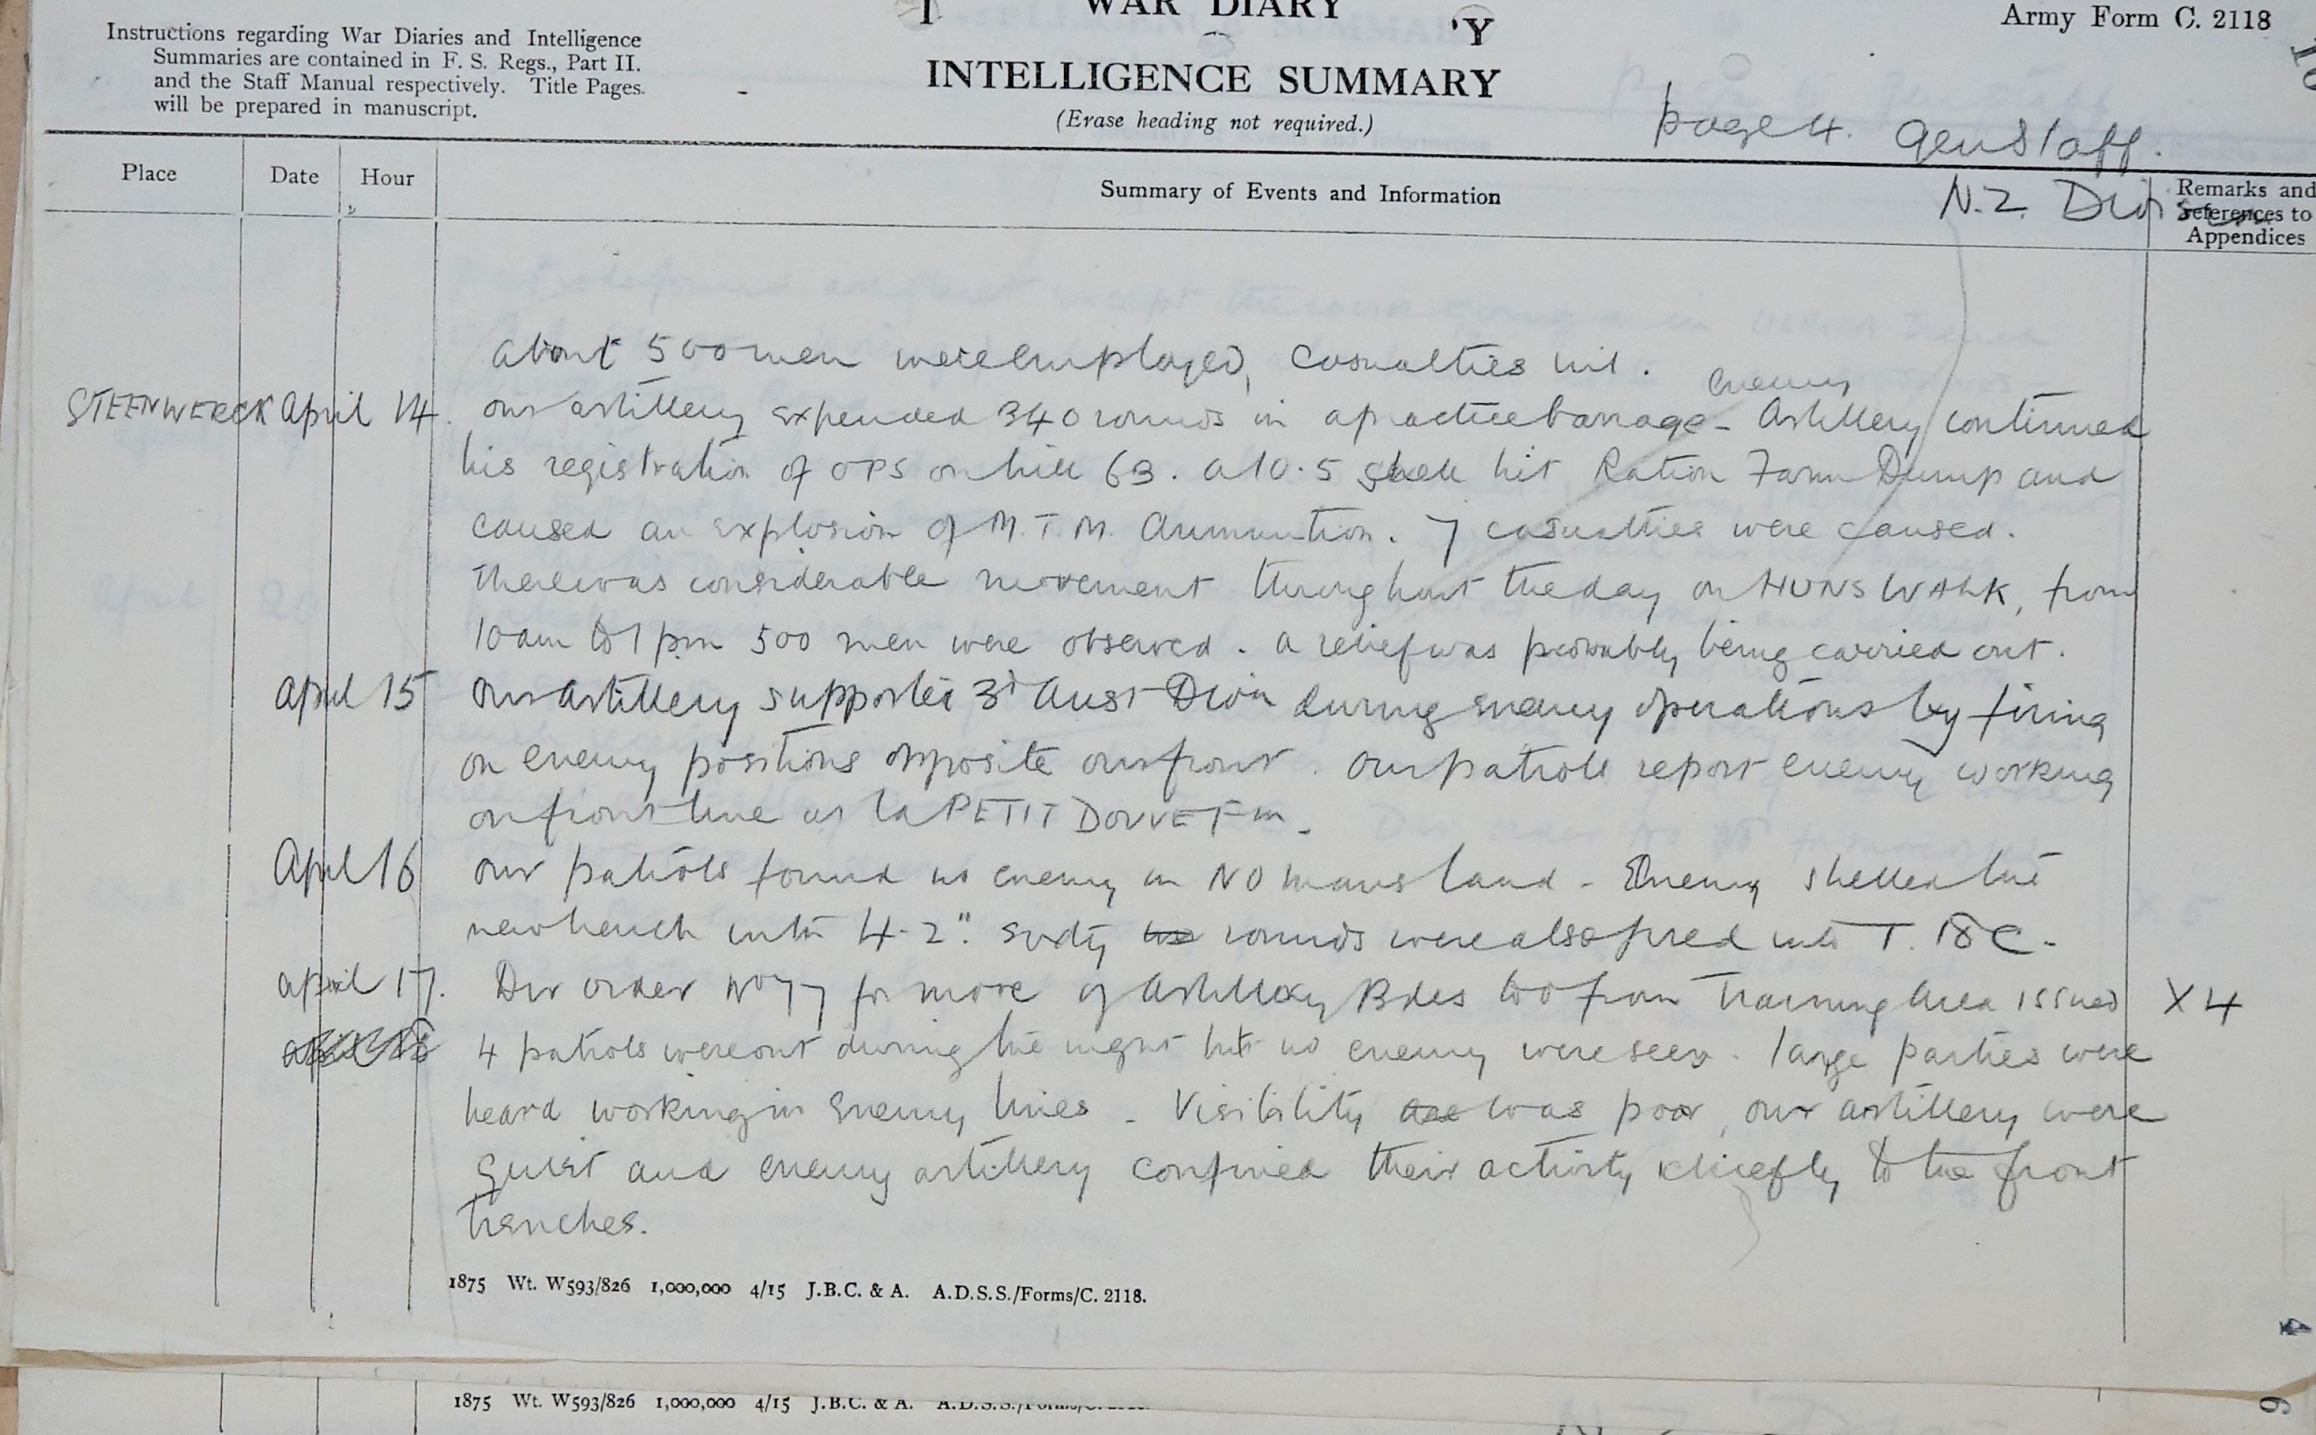 WAR DIARY
Army Form C. 2118
Instructions regarding War Diaries and Intelligence
Summaries are contained in F. S. Regs., Part II.
and the Staff Manual respectively. Title Pages
will be prepared in manuscript.
INTELLIGENCE SUMMARY
(Erase heading not required.)
page 4. Gen Staff.
N.Z. Division
Place Date Hour Summary of Events and Information Remarks and references to Appendices
About 500 men were employed, casualties nil.
STEENWERCK April 14. Our artillery expended 340 rounds in a practice barrage - enemy Artillery continued
his registration of OPS on hill 63. A 10.5 shell hit Ration Farm Dump and
caused an explosion of M.T.M. Ammuntion. 7 casualties were caused.
There was considerable movement throughout the day on HUNS WALK, from
10 am to 1 pm 500 men were observed. A relief was probably being carried out.
April 15 Our Artillery supported 3d Aust Divn during enemy operations by firing
on enemy positions opposite our front. Our patrols report enemy working
on front line at la PETIT DOUVE Fm.
April 16 Our patrols found no enemy in NO mans land - Enemy shelled the
new trench with 4.2". Sixty rounds were also fired into T. 18 C.
April 17. Div order No 77 for move of Artillery Bdes to & from Training Area issued X 4
4 patrols were out during the night but no enemy were seen. Large parties were
heard working in enemy lines - Visibility was poor, our artillery were
quiet and enemy artillery confined their activity chiefly to the front
trenches.
1875 Wt. W593/826 1,000,000 4/15 J.B.C. & A. A.D.S.S./Forms/C. 2118.
4
1875 Wt. W593/826 1,000,000 4/15 J.B.C. & A.
6